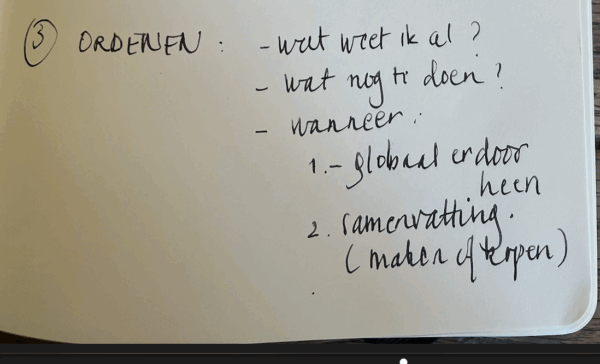 ③ ORDENEN : - wat weet ik al ?
- wat nog te doen ?
- wanneer :
1. - globaal erdoor
heen
2. samenvatting.
(maken of kopen)